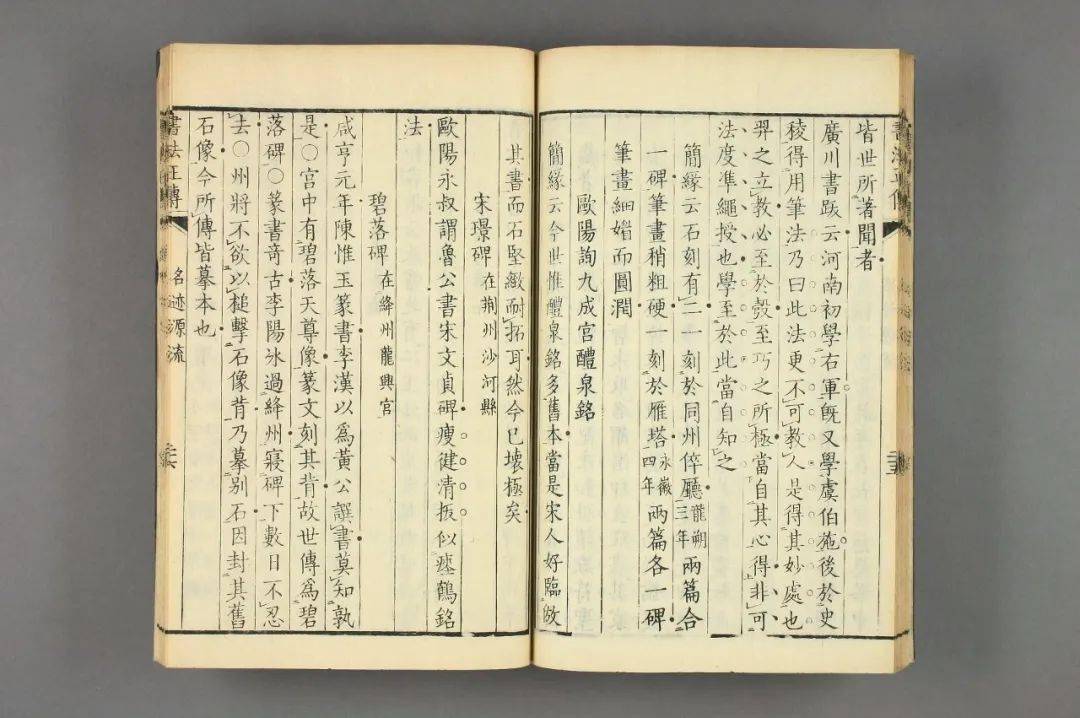 皆世所著聞者
廣川書跋云河南初學右軍旣又學虞伯施後於史
稜得用筆法乃曰此法更不可教人是得其妙處也
羿之立教必至於彀至巧之所極當自其心得非可
法度準繩授也學至於此當自知之
簡緣云石刻有二一刻於同州倅廳龍朔三年兩篇合
一碑筆畫稍粗硬一刻於雁塔永徽四年兩篇各一碑
筆畫細婚而圓潤
歐陽詢九成宮醴泉銘
簡緣云今世惟醴泉銘多舊本當是宋人好臨故
其書而石堅緻耐拓耳然今已壞極矣
宋璟碑 在荆州沙河縣
歐陽永叔謂魯公書宋文貞碑瘦徤清拔似瘞鶴銘
法
碧落碑 在絳州龍興宮
咸亨元年陳惟玉篆書李漢以爲黃公譔書莫知孰
是○宮中有碧落天尊像篆文刻其背故世傳爲碧
落碑○篆書奇古李陽氷過絳州寢碑下數日不忍
去○州將不欲以槌擊石像背乃摹别石因封其舊
石像今所傳皆摹本也
書法正傳
名迹源流